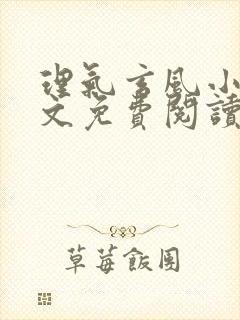 理氣言風小
文免費閱讀
草莓飯團